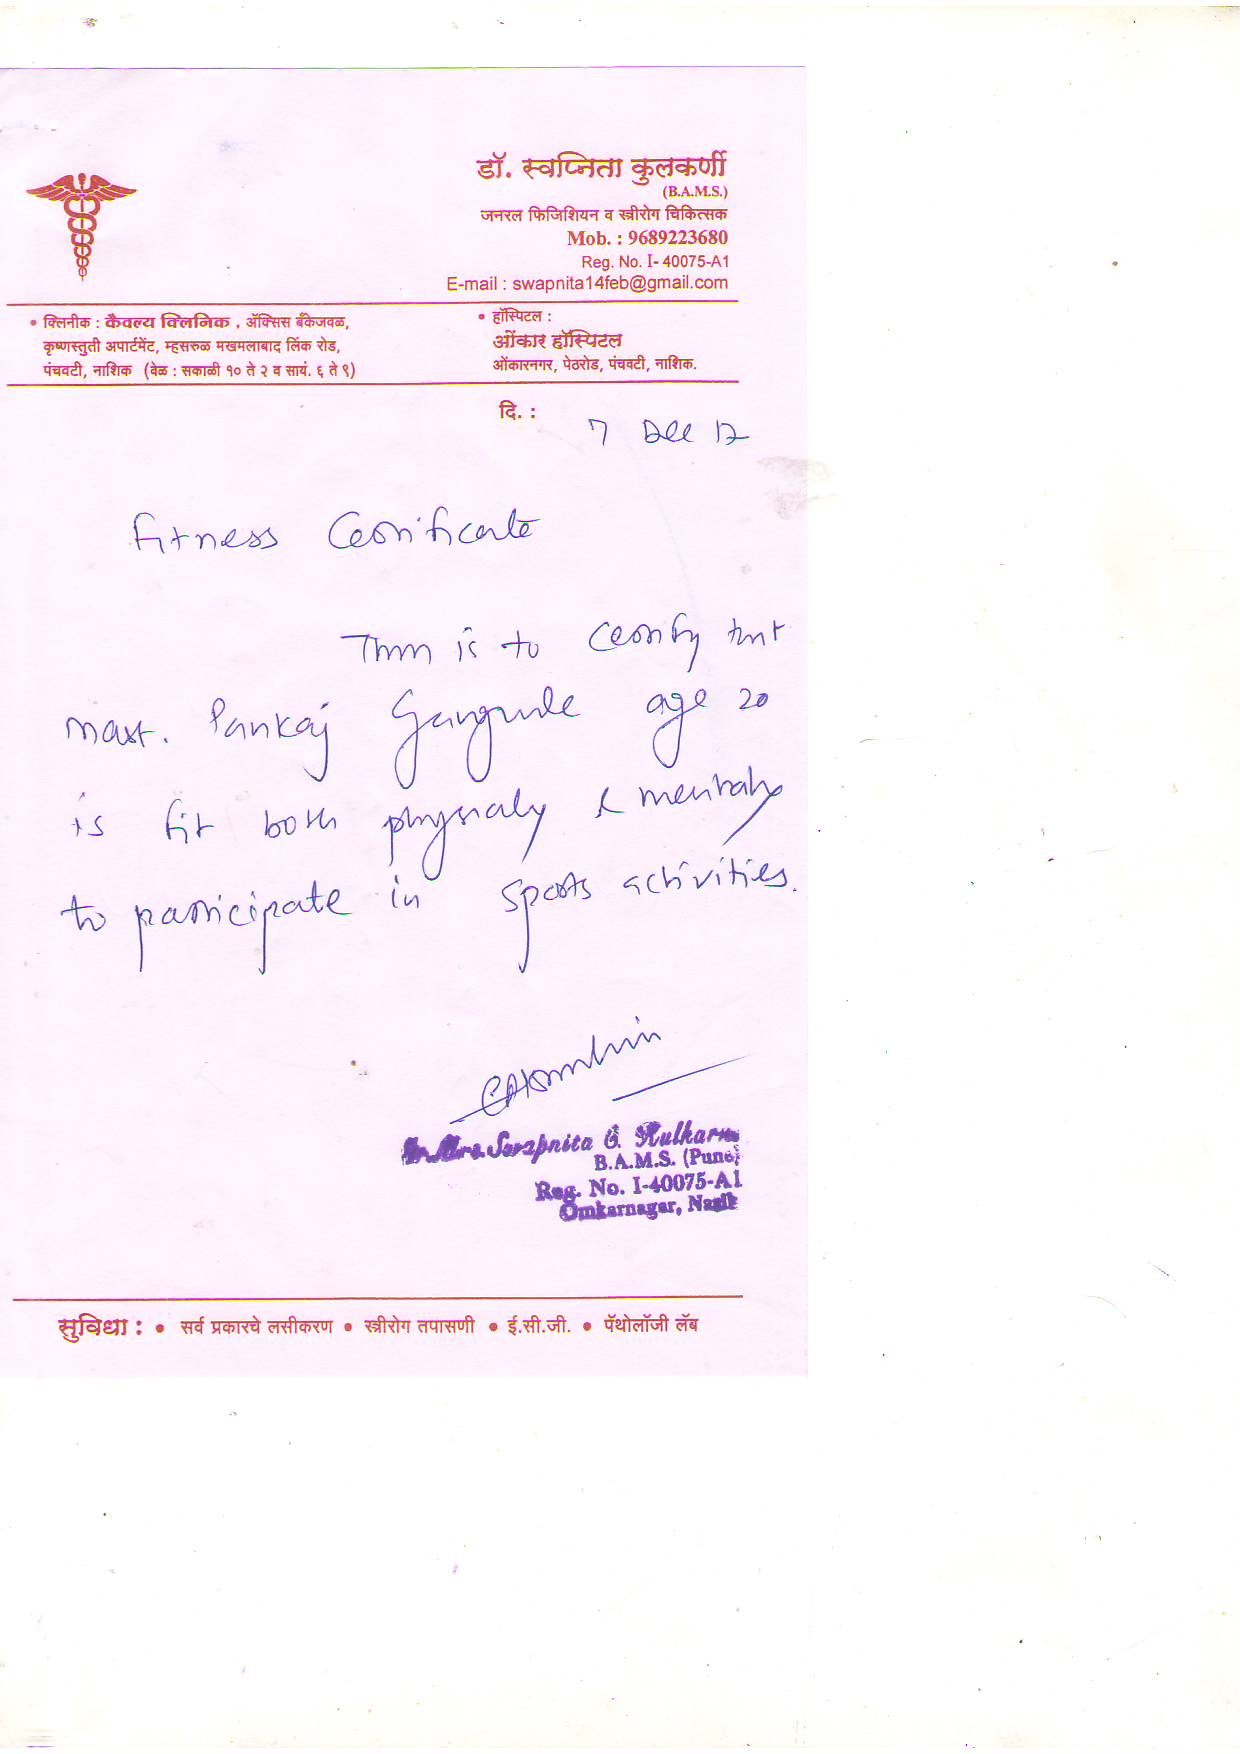 डॉ. स्वप्निता कुलकर्णी
(B.A.M.S.)
जनरल फिजिशियन व स्त्रीरोग चिकित्सक
Mob. : 9689223680
Reg. No. I- 40075-A1
E-mail : swapnita14feb@gmail.com
• क्लिनीक : कैवल्य क्लिनिक , ॲक्सिस बँकेजवळ,
कृष्णस्तुती अपार्टमेंट, म्हसरुळ मखमलाबाद लिंक रोड,
पंचवटी, नाशिक (वेळ : सकाळी १० ते २ व सायं. ६ ते ९)
• हॉस्पिटल :
ओंकार हॉस्पिटल
ओंकारनगर, पेठरोड, पंचवटी, नाशिक.
दि. : 7 Dec 12
Fitness Certificate
This is to certify that
Mast. Pankaj Gangurde age 20
is fit both physicaly & mentaly
to participate in sports activities.
Dr. Mrs. Swapnita C. Kulkarni
B.A.M.S. (Pune)
Reg. No. I-40075-A1
Omkarnagar, Nasik
सुविधा : • सर्व प्रकारचे लसीकरण • स्त्रीरोग तपासणी • ई.सी.जी. • पॅथोलॉजी लॅब